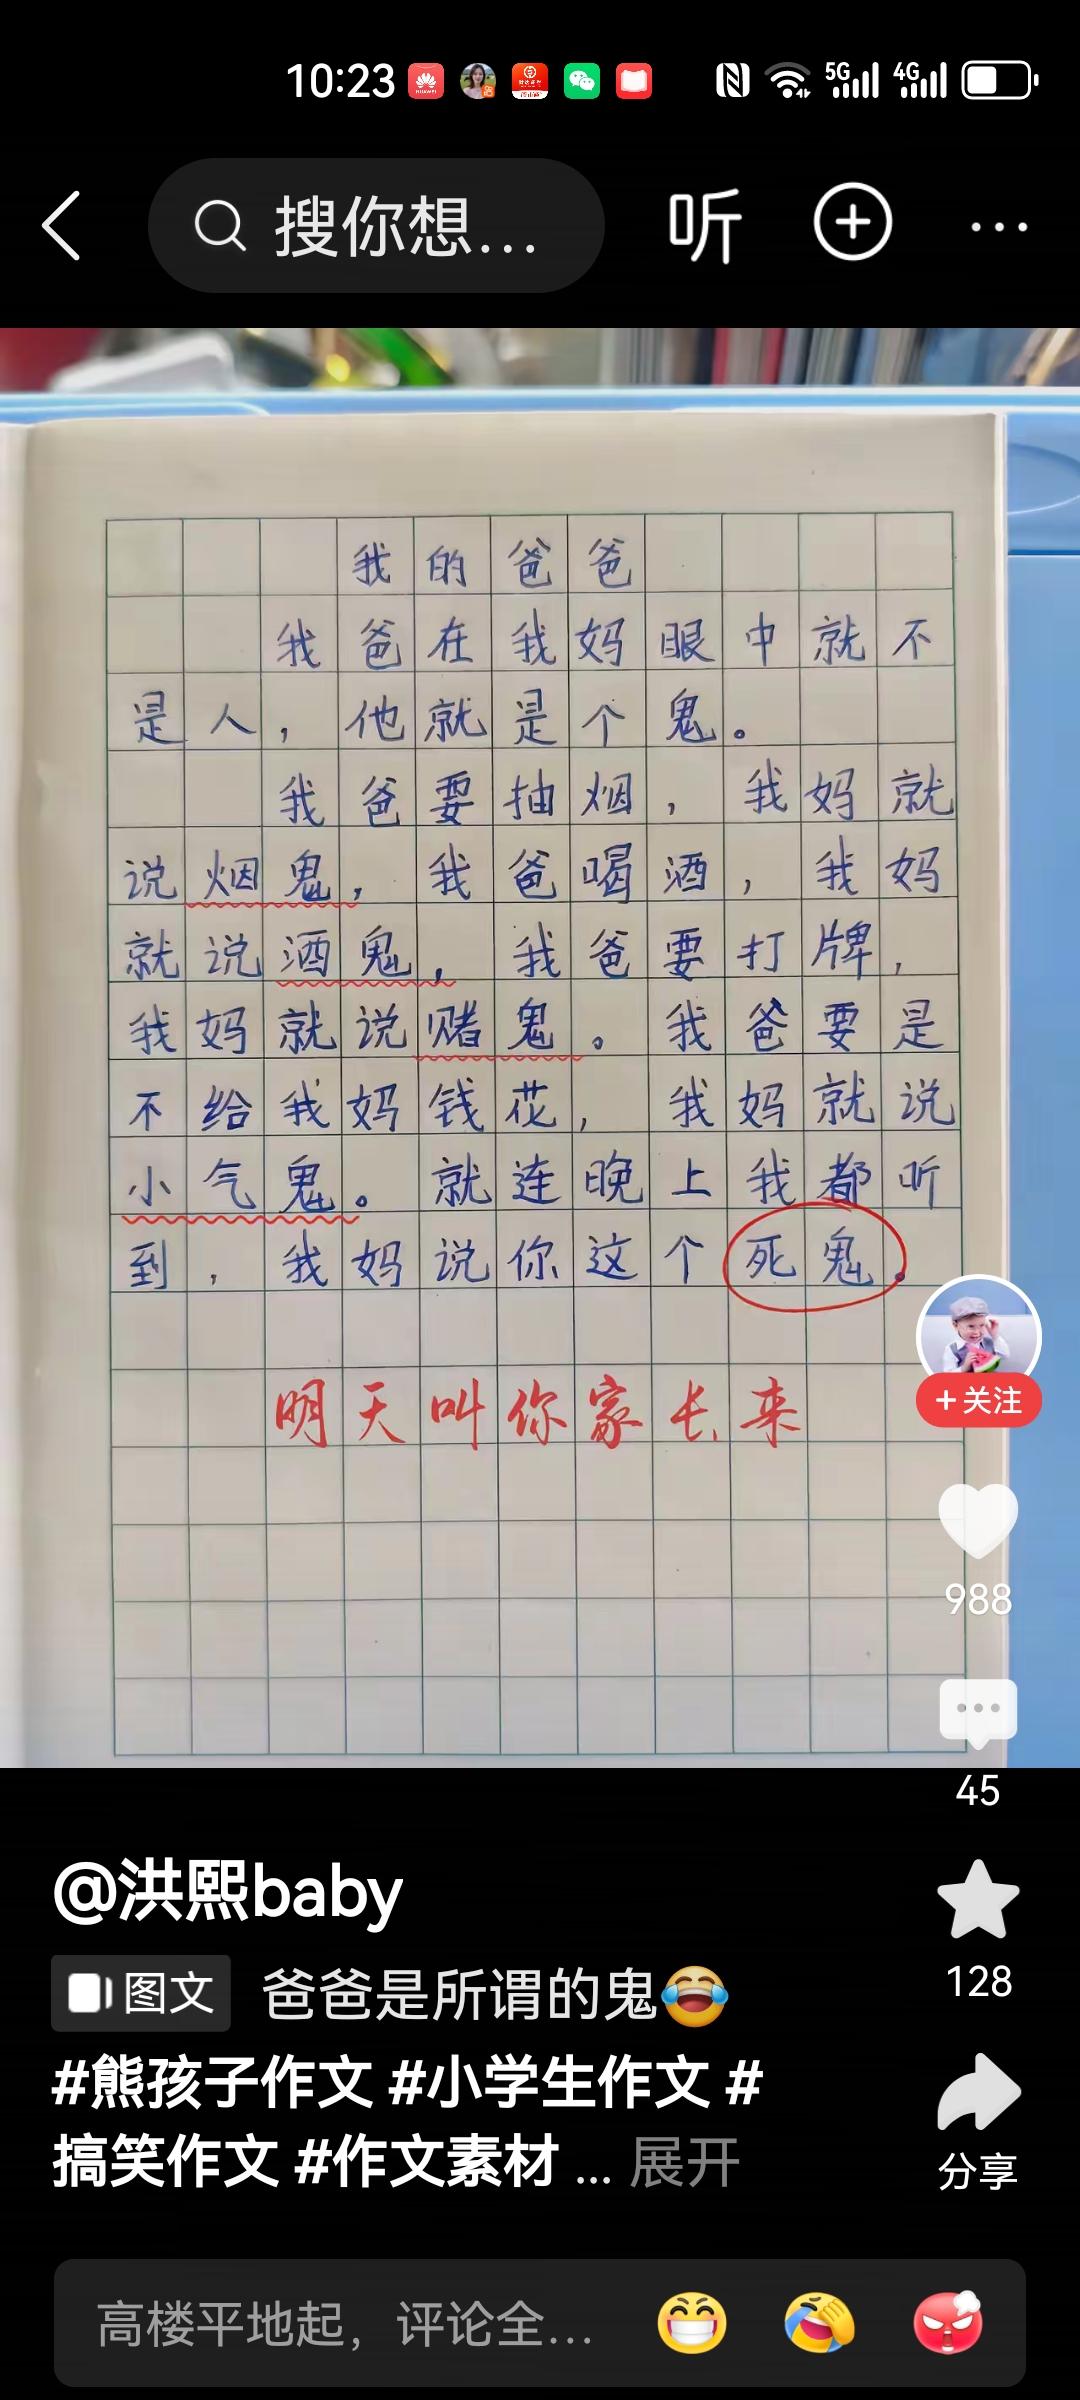 10:23
HUAWEI
5G 4G
搜你想... 听
我的爸爸
我爸在我妈眼中就不
是人，他就是个鬼。
我爸要抽烟，我妈就
说烟鬼，我爸喝酒，我妈
就说酒鬼，我爸要打牌，
我妈就说赌鬼。我爸要是
不给我妈钱花，我妈就说
小气鬼。就连晚上我都听
到，我妈说你这个死鬼。
明天叫你家长来
+关注
988
45
@洪熙baby
128
图文 爸爸是所谓的鬼😂
#熊孩子作文 #小学生作文 #
搞笑作文 #作文素材 ... 展开
分享
高楼平地起，评论全...